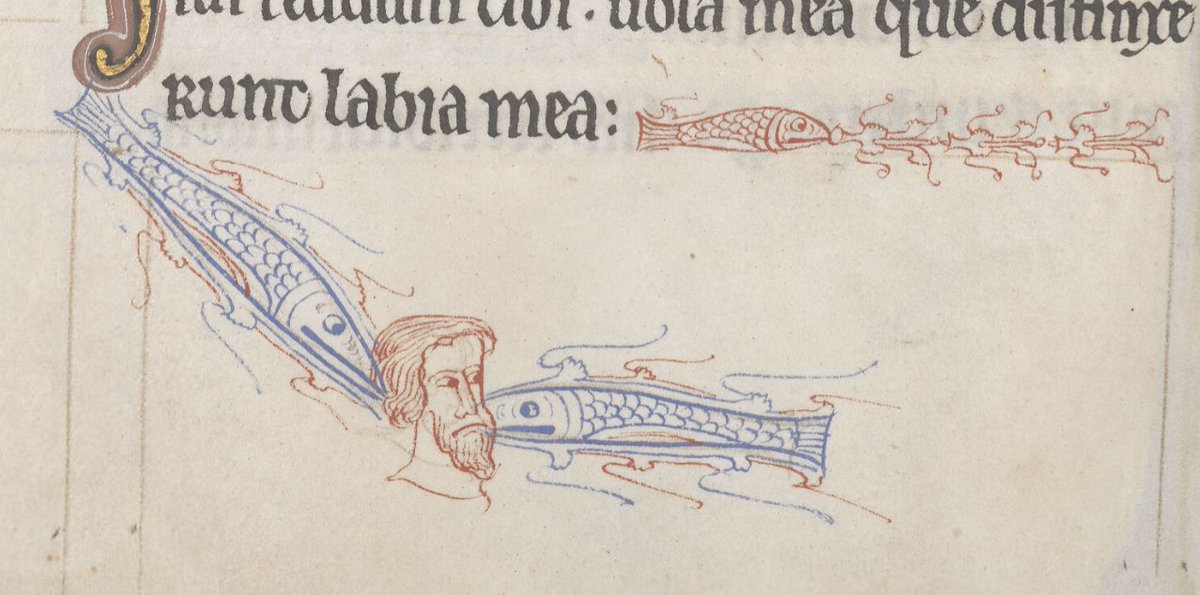 reddam tibi · uota mea que distinxe
runt labia mea: